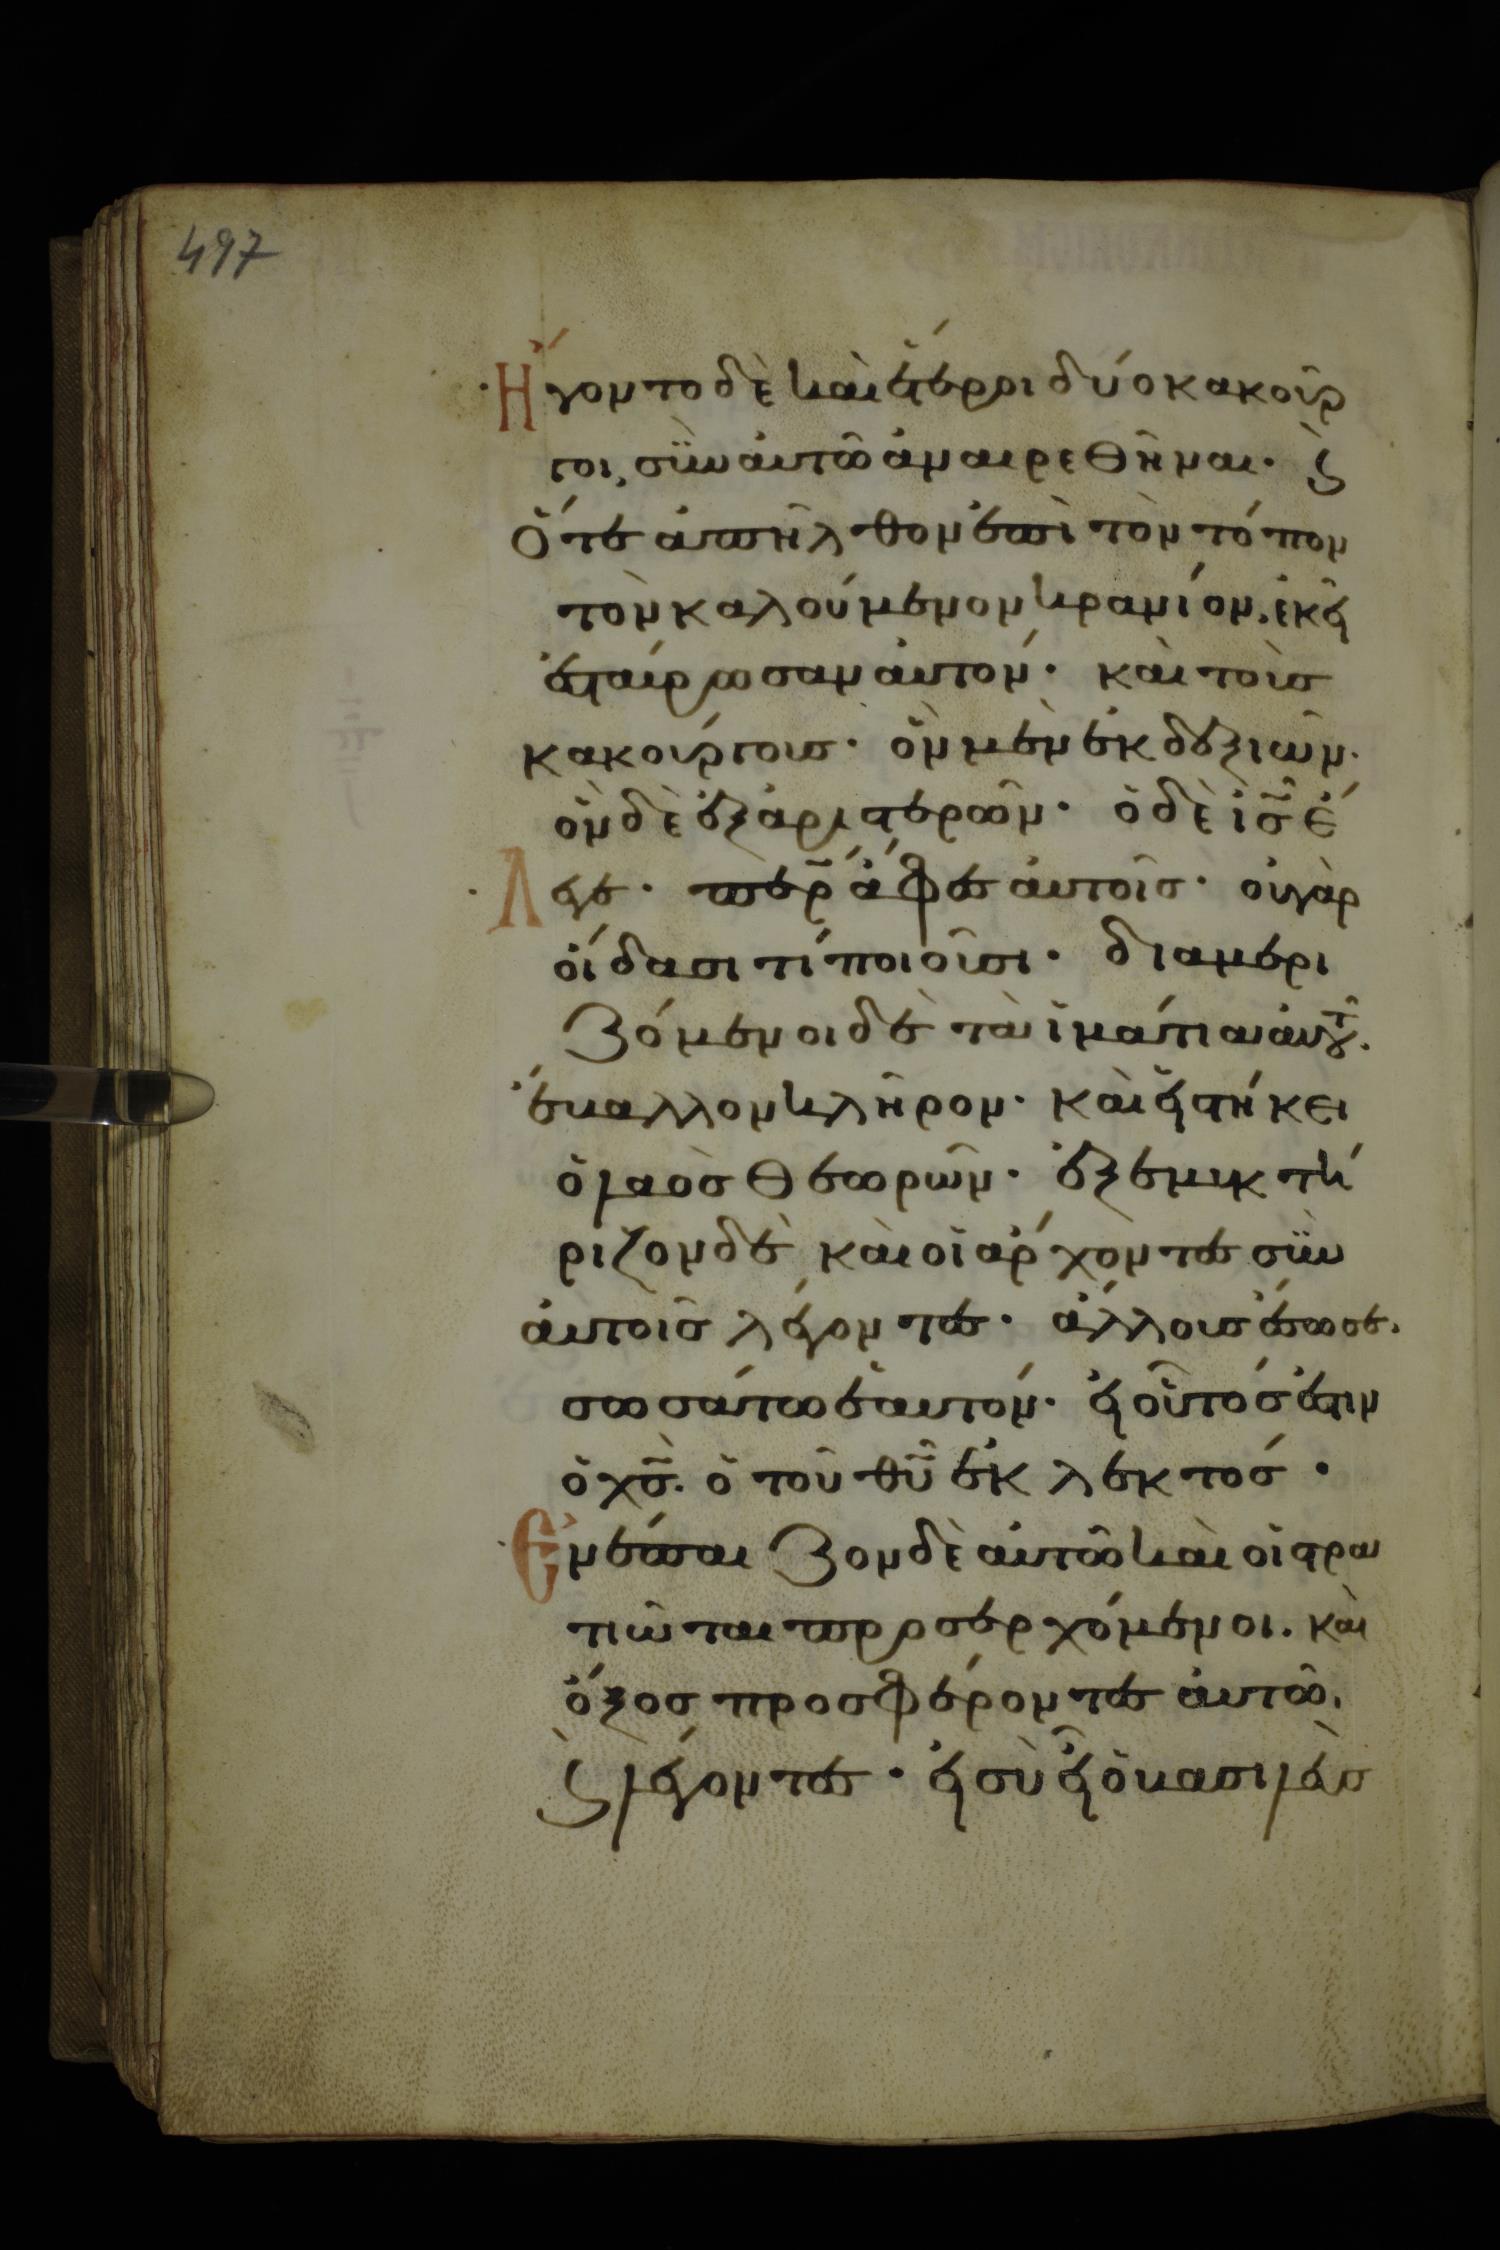 497
Ἤγοντο δὲ καὶ ἕτεροι δύο κακοῦρ
γοι, σὺν αὐτῶ ἀναιρεθῆναι· ϛ̀
Ὅτε ἀπῆλθον ἐπὶ τὸν τόπον
τὸν καλούμενον κρανίον, ἐκεῖ
ἐσταύρωσαν αὐτόν· καὶ τοὺσ
κακούργουσ· ὃν μὲν ἐκ δεξιῶν·
ὃν δὲ ἐξ ἀριστερῶν· ὁ δὲ ἰ̅σ̅ ἔ
λεγε· π̅ε̅ρ̅ ἄφεσ αὐτοῖσ· οὐ γὰρ
οἴδασι τί ποιοῦσι· διαμερι
ζόμενοι δὲ τὰ ἱμάτια αὐτοῦ.
ἔβαλλον κλῆρον· καὶ εἱστήκει
ὁ λαὸσ θεωρῶν· ἐξεμυκτή
ριζον δὲ καὶ οἱ ἄρχοντεσ σὺν
αὐτοῖσ λέγοντεσ· ἄλλουσ ἔσωσε.
σωσάτω ἑαυτόν· εἰ οὗτόσ ἐστιν
ὁ χ̅σ̅. ὁ τοῦ θ̅υ̅ ἐκλεκτόσ·
Ἐνέπαιζον δὲ αὐτῶ καὶ οἱ στρα
τιῶται προσερχόμενοι. καὶ
ὄξοσ προσφέροντεσ αὐτῶ.
ϛ̀ λέγοντεσ· εἰ σὺ εἶ ὁ βασιλεὺσ